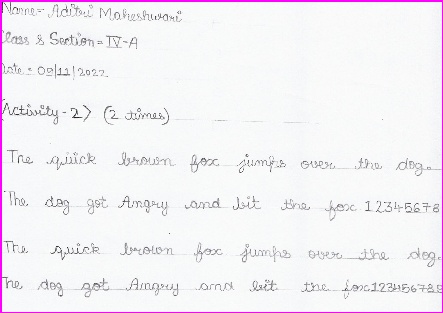 Name - Aditri Maheshwari
Class & Section = IV-A
Date = 09/11/2022
Activity - 2) (2 times)
The quick brown fox jumps over the dog.
The dog got Angry and bit the fox 12345678
The quick brown fox jumps over the dog.
The dog got Angry and bit the fox123456789